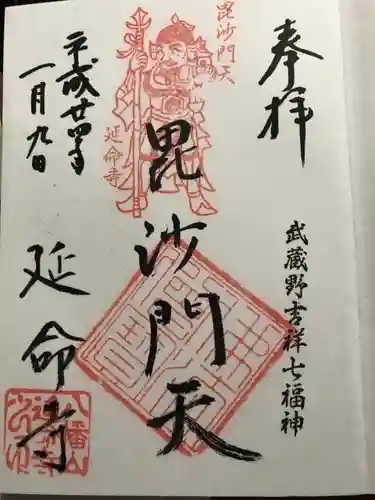 奉拝
武蔵野吉祥七福神
毘沙門天
毘沙門天
延命寺
平成廿四年
一月九日
延命寺